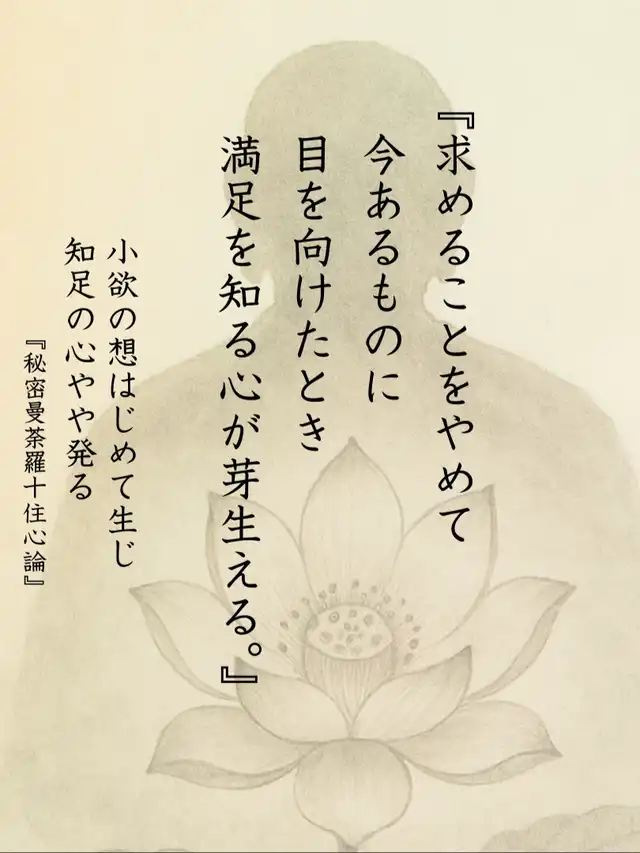 『求めることをやめて
今あるものに
目を向けたとき
満足を知る心が芽生える。』
小欲の想はじめて生じ
知足の心やや発る
『秘密曼荼羅十住心論』